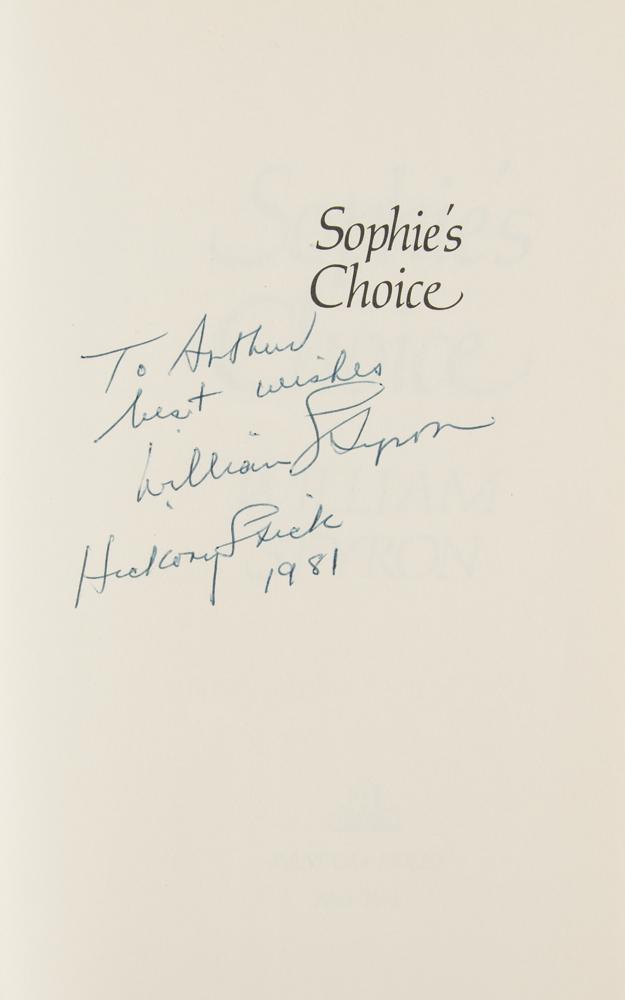 Sophie's
Choice
To Arthur
best wishes
William Styron
Hickory Stick
1981